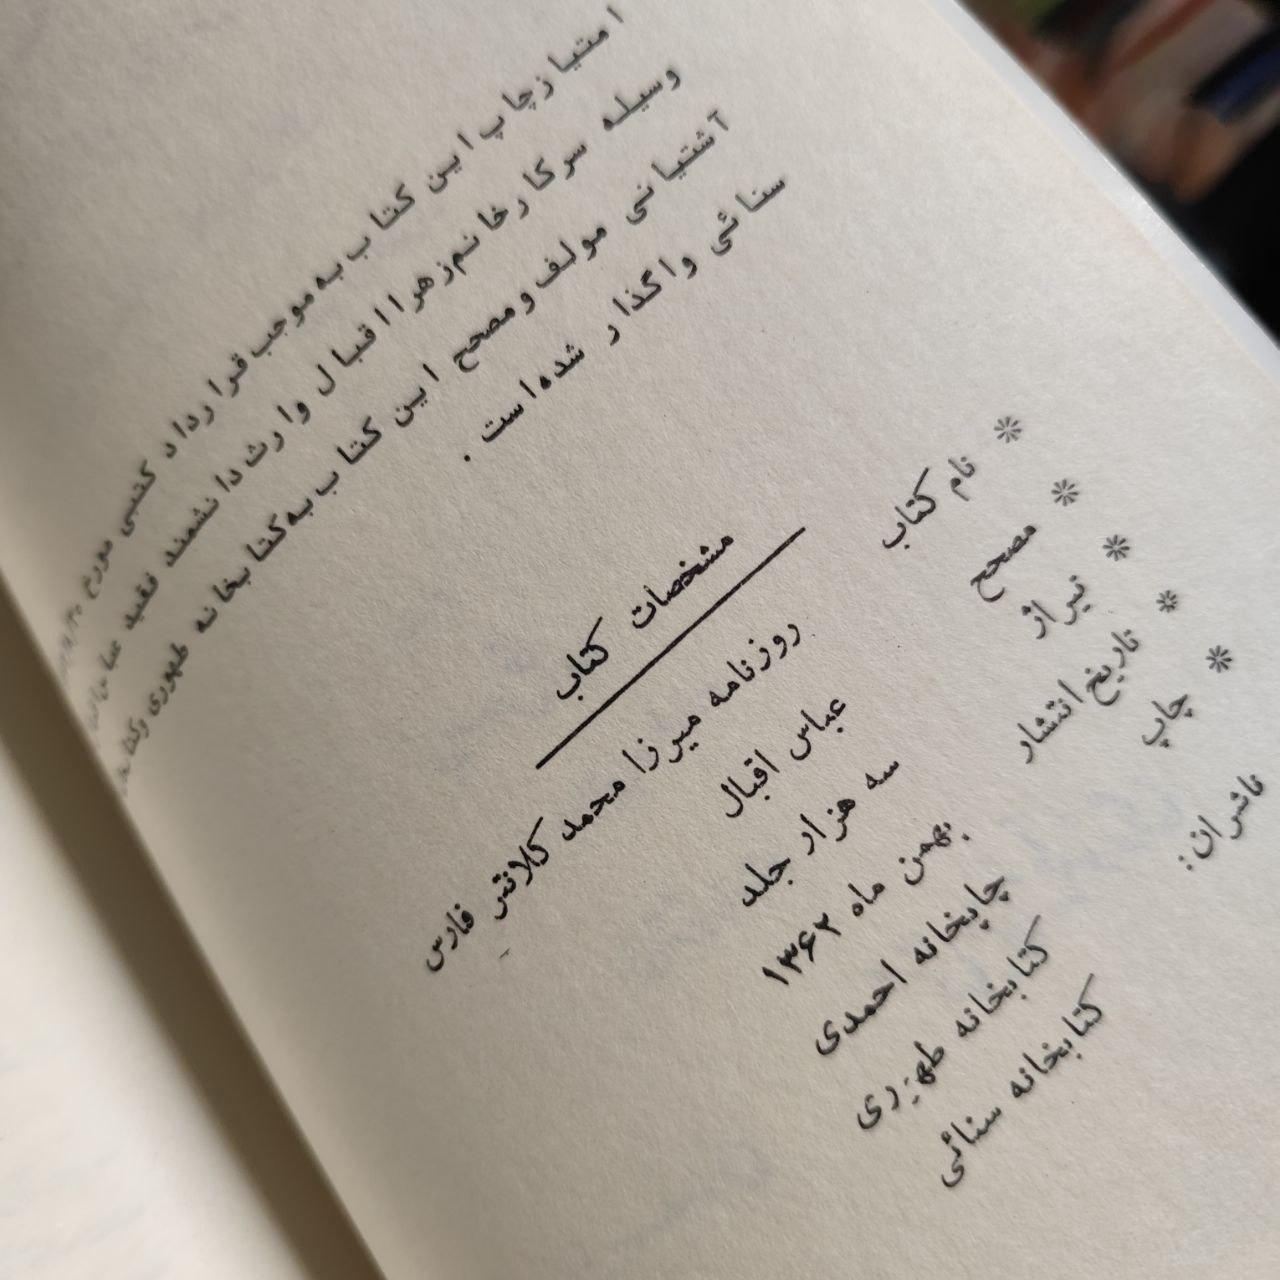 امتیاز چاپ این کتاب به موجب قرارداد کتبی مورخ
وسیله سرکار خانم زهرا اقبال وارث دانشمند فقید
آشتیانی مولف و مصحح این کتاب به کتابخانه طهوری و کتابخانه
سنائی واگذار شده است .
مشخصات کتاب
* نام کتاب روزنامه میرزا محمد کلانتر فارس
* مصحح عباس اقبال
* تیراژ سه هزار جلد
* تاریخ انتشار بهمن ماه ۱۳۶۲
* چاپ چاپخانه احمدی
ناشران : کتابخانه طهوری
کتابخانه سنائی